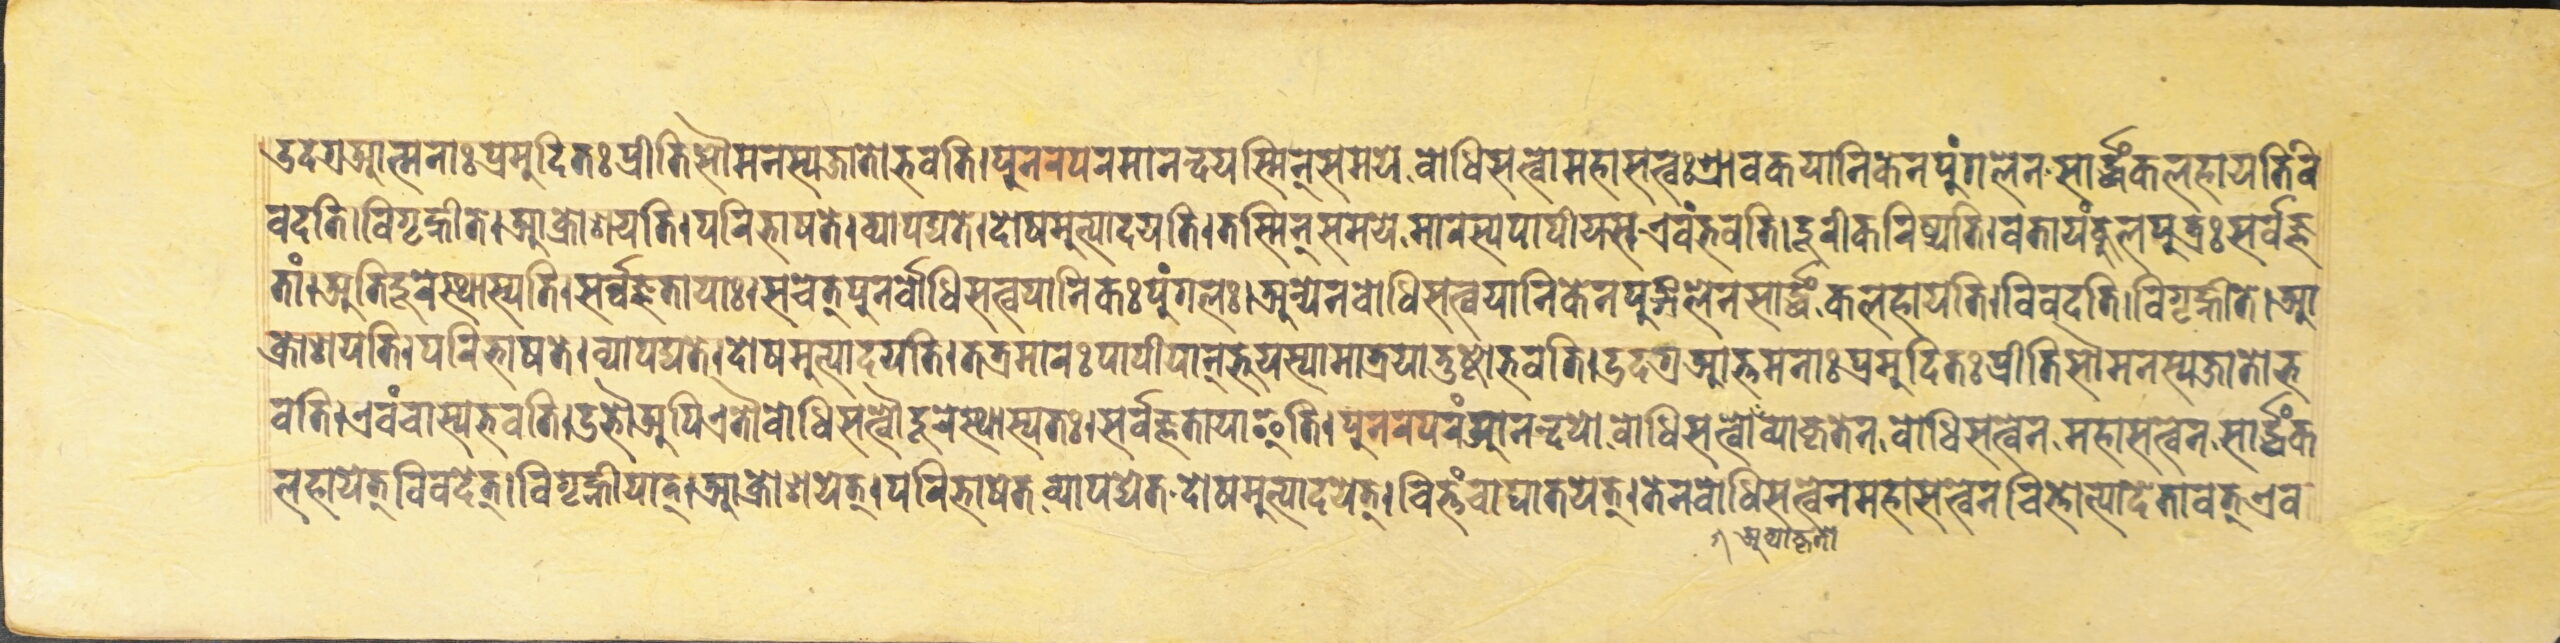 उदग्रआत्मनाःप्रमुदितःप्रीतिसौमनस्यजातोभवति।पुनरपरमानन्दयस्मिन्समये बोधिसत्वोमहासत्वःश्रावकयानिकेनपुंगलेन सार्द्धंकलहायतिवि
वदति।विगृह्णीते।आक्रोशयति।परिभाषते।व्यापद्यते।दोषमुत्पादयति।तस्मिन्समये मारस्यपापीयस एवंभवति।दूरीकरिष्यति।वतायंकुलपुत्रःसर्वज्ञ
तां।अतिदूरेस्थास्यति।सर्व्वज्ञतायाः।सचेत्पुनर्बोधिसत्वयानिकःपुंगलः।अन्येनबोधिसत्वयानिकेनपुङ्गलेनसार्द्धं कलहायति।विवदति।विगृह्णीते।आ
क्रोशयति।परिभाषते।व्यापद्यते।दोषमुत्पादयति।तत्रमारःपापीयान्भूयस्यामात्रयातुष्टोभवति।उदग्रआत्तमनाःप्रमुदितःप्रीतिसौमनस्यजातोभ
वति।एवंचास्यभवति।उभौअपिएतौबोधिसत्वौदूरेस्थास्यतः।सर्वज्ञतायाइति।पुनरपरंआनन्दयो बोधिसत्वोव्याकृतेन बोधिसत्वेन महासत्वेन सार्द्धंक
लहायेत्विवदेत्।विगृह्णीयात्।आक्रोशयेत्।परिभाषेत व्यापद्येत दोषमुत्पादयेत्।चित्तंचाघातयेत्।तेनबोधिसत्वेनमहासत्वेनचित्तोत्पादेतावत्एव
अव्याकृतो